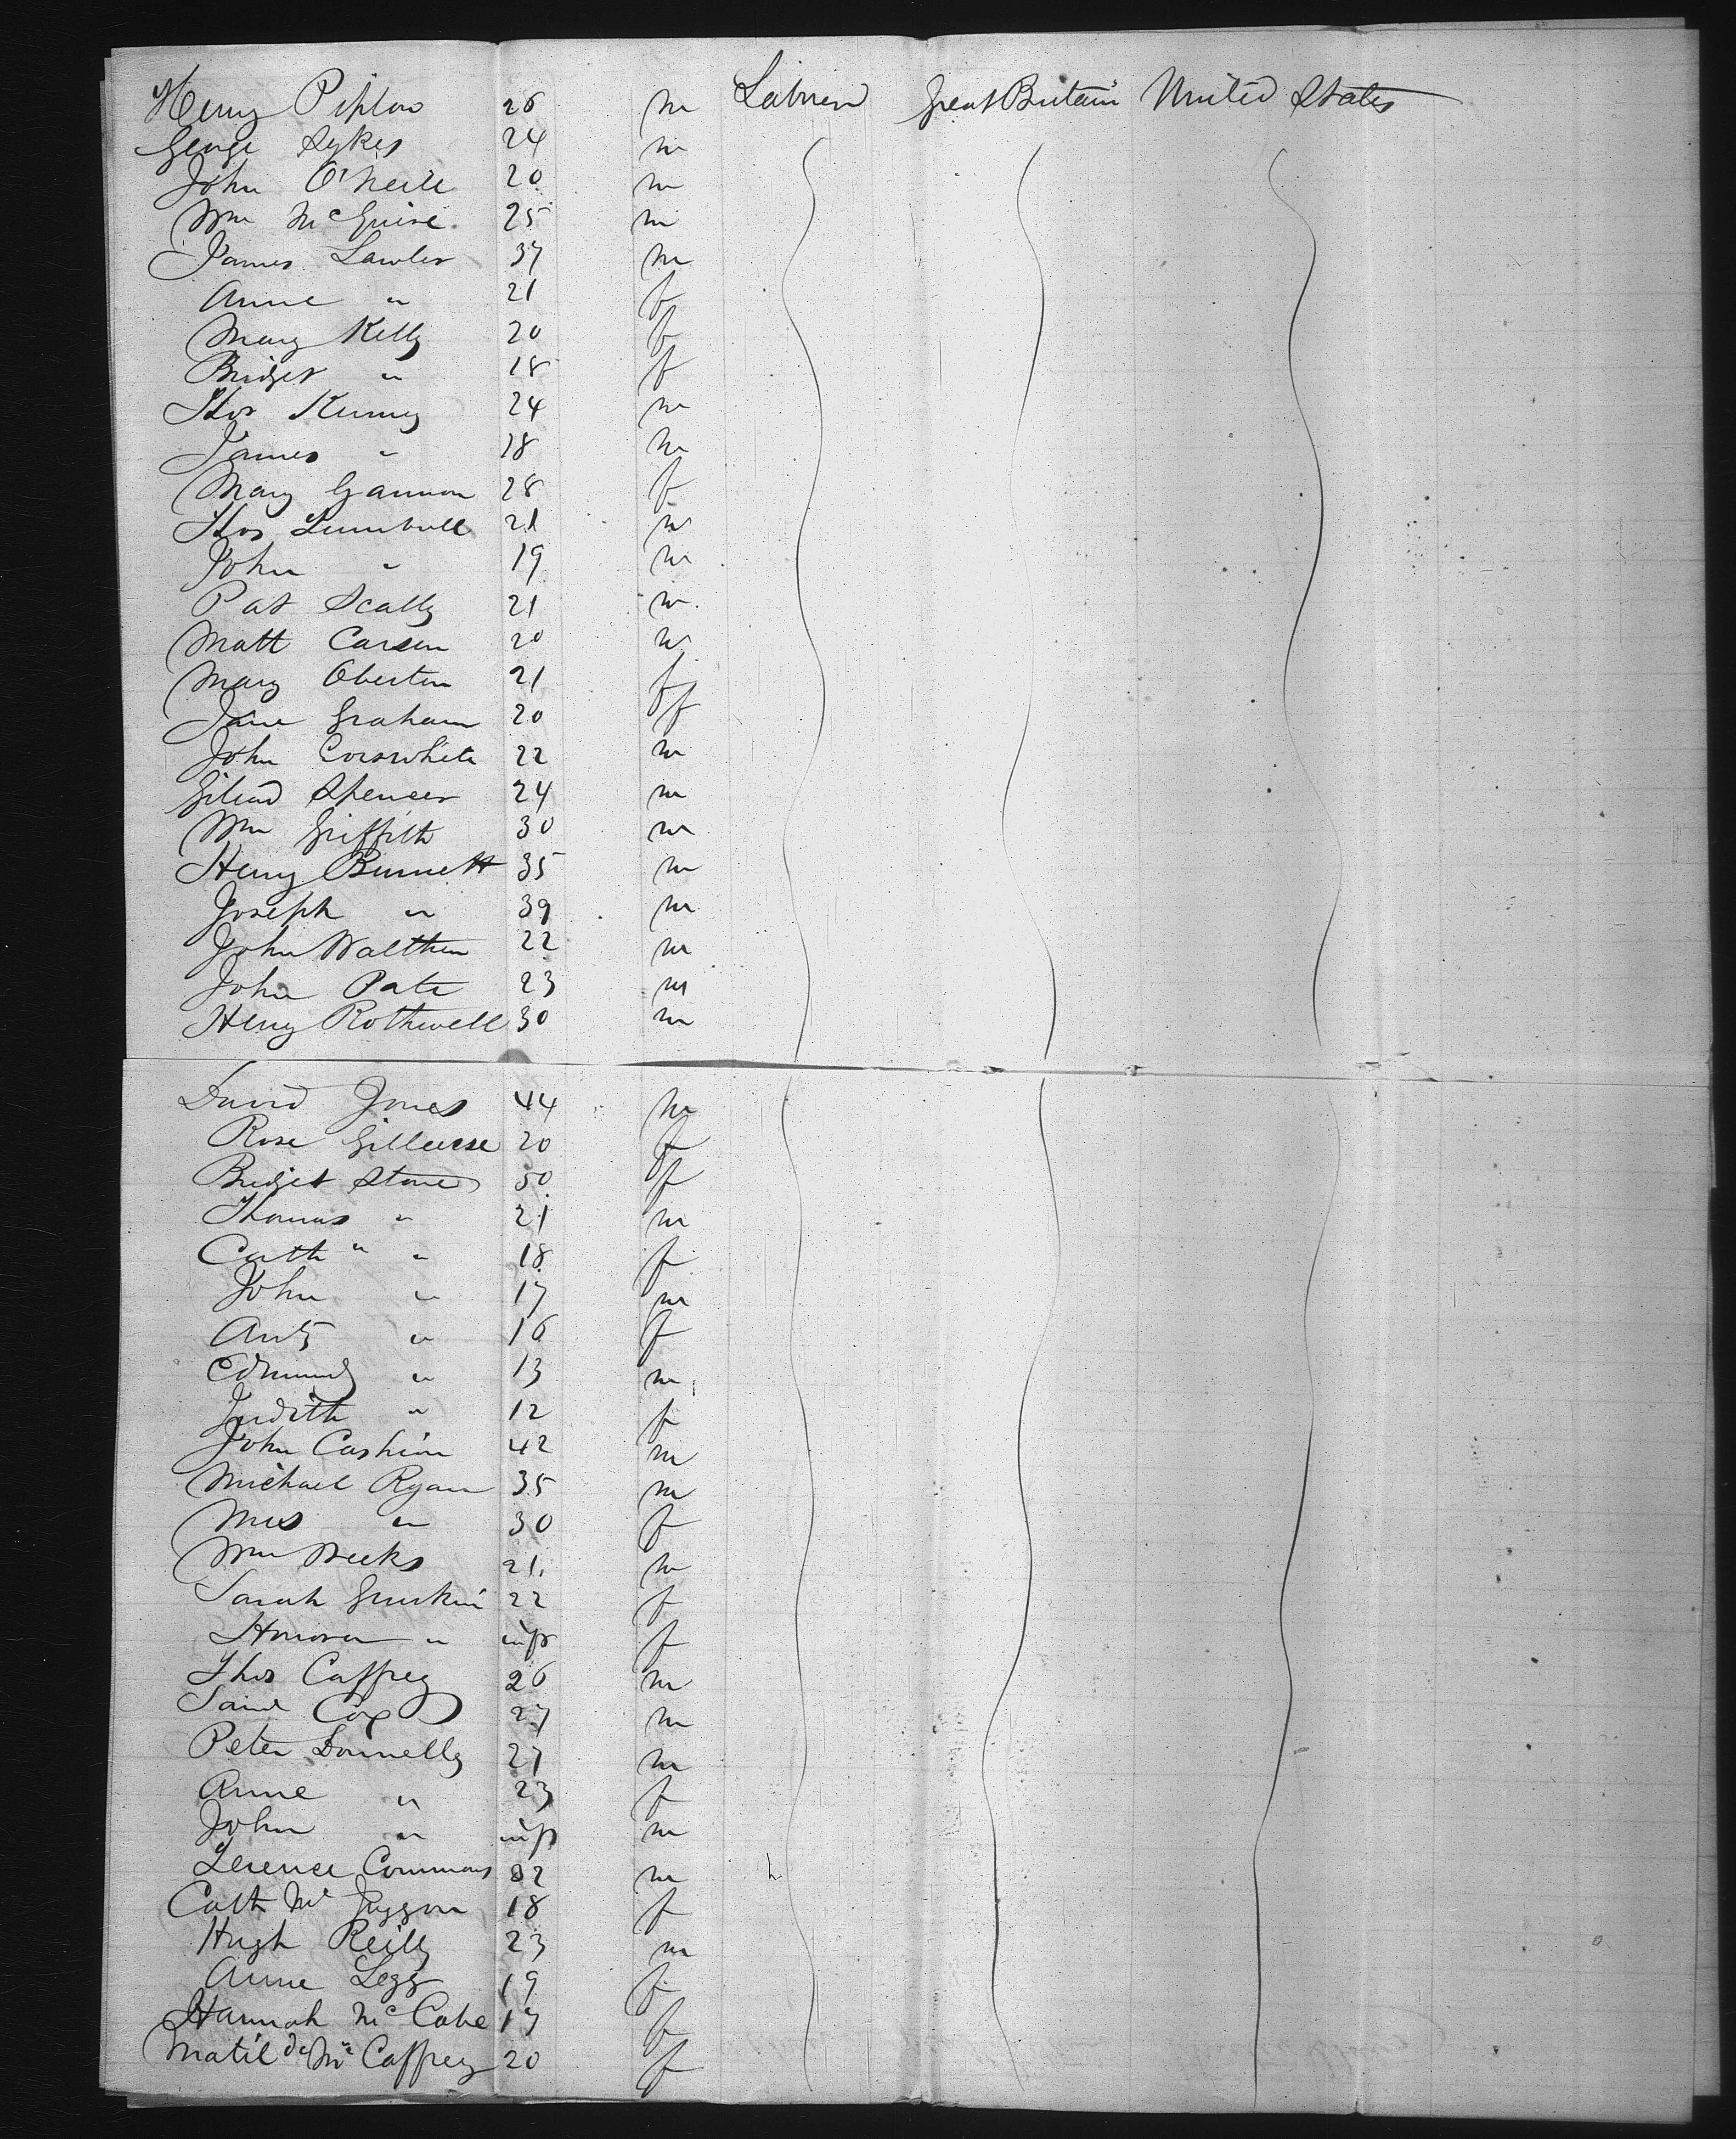 Henry 26 m Labourer Great Britain United States
George Sykes 24 m
John O'Neill 20 m
Wm McGuire 25 m
James Lawler 37 m
Anne " 21 f
Mary Kelly 20 f
Bridget " 18 f
Thos Kenney 24 m
James " 18 m
Mary Gannon 28 f
Thos Turnbull 21 m
John " 19 m
Pat Scally 21 m
Matt Carson 20 m
Mary Oberton 21 f
Jane Graham 20 f
John 22 m
Gilead Spencer 24 m
Wm Griffith 30 m
Henry Burnett 35 m
Joseph " 39 m
John Walthew 22 m
John Pate 23 m
Henry Rothwell 30 m
David Jones 44 m
Rose 20 f
Bridget Stone 50 f
Thomas " 21 m
Cath " " 18 f
John " 17 m
" 16 f
Edmund " 13 m
Judith " 12 f
John Cashion 42 m
Michael Ryan 35 m
Mrs " 30 f
Wm Weeks 21 m
Sarah 22 f
Honora " inft f
Thos Caffrey 26 m
Cox 27 m
Peter Donnelly 27 m
Anne " 23 f
John " inft m
Terence Commons 32 m
Cath Mc 18 f
Hugh Reilly 23 m
Anne Legg 19 f
Hannah McCabe 17 f
Matilda McCaffrey 20 f